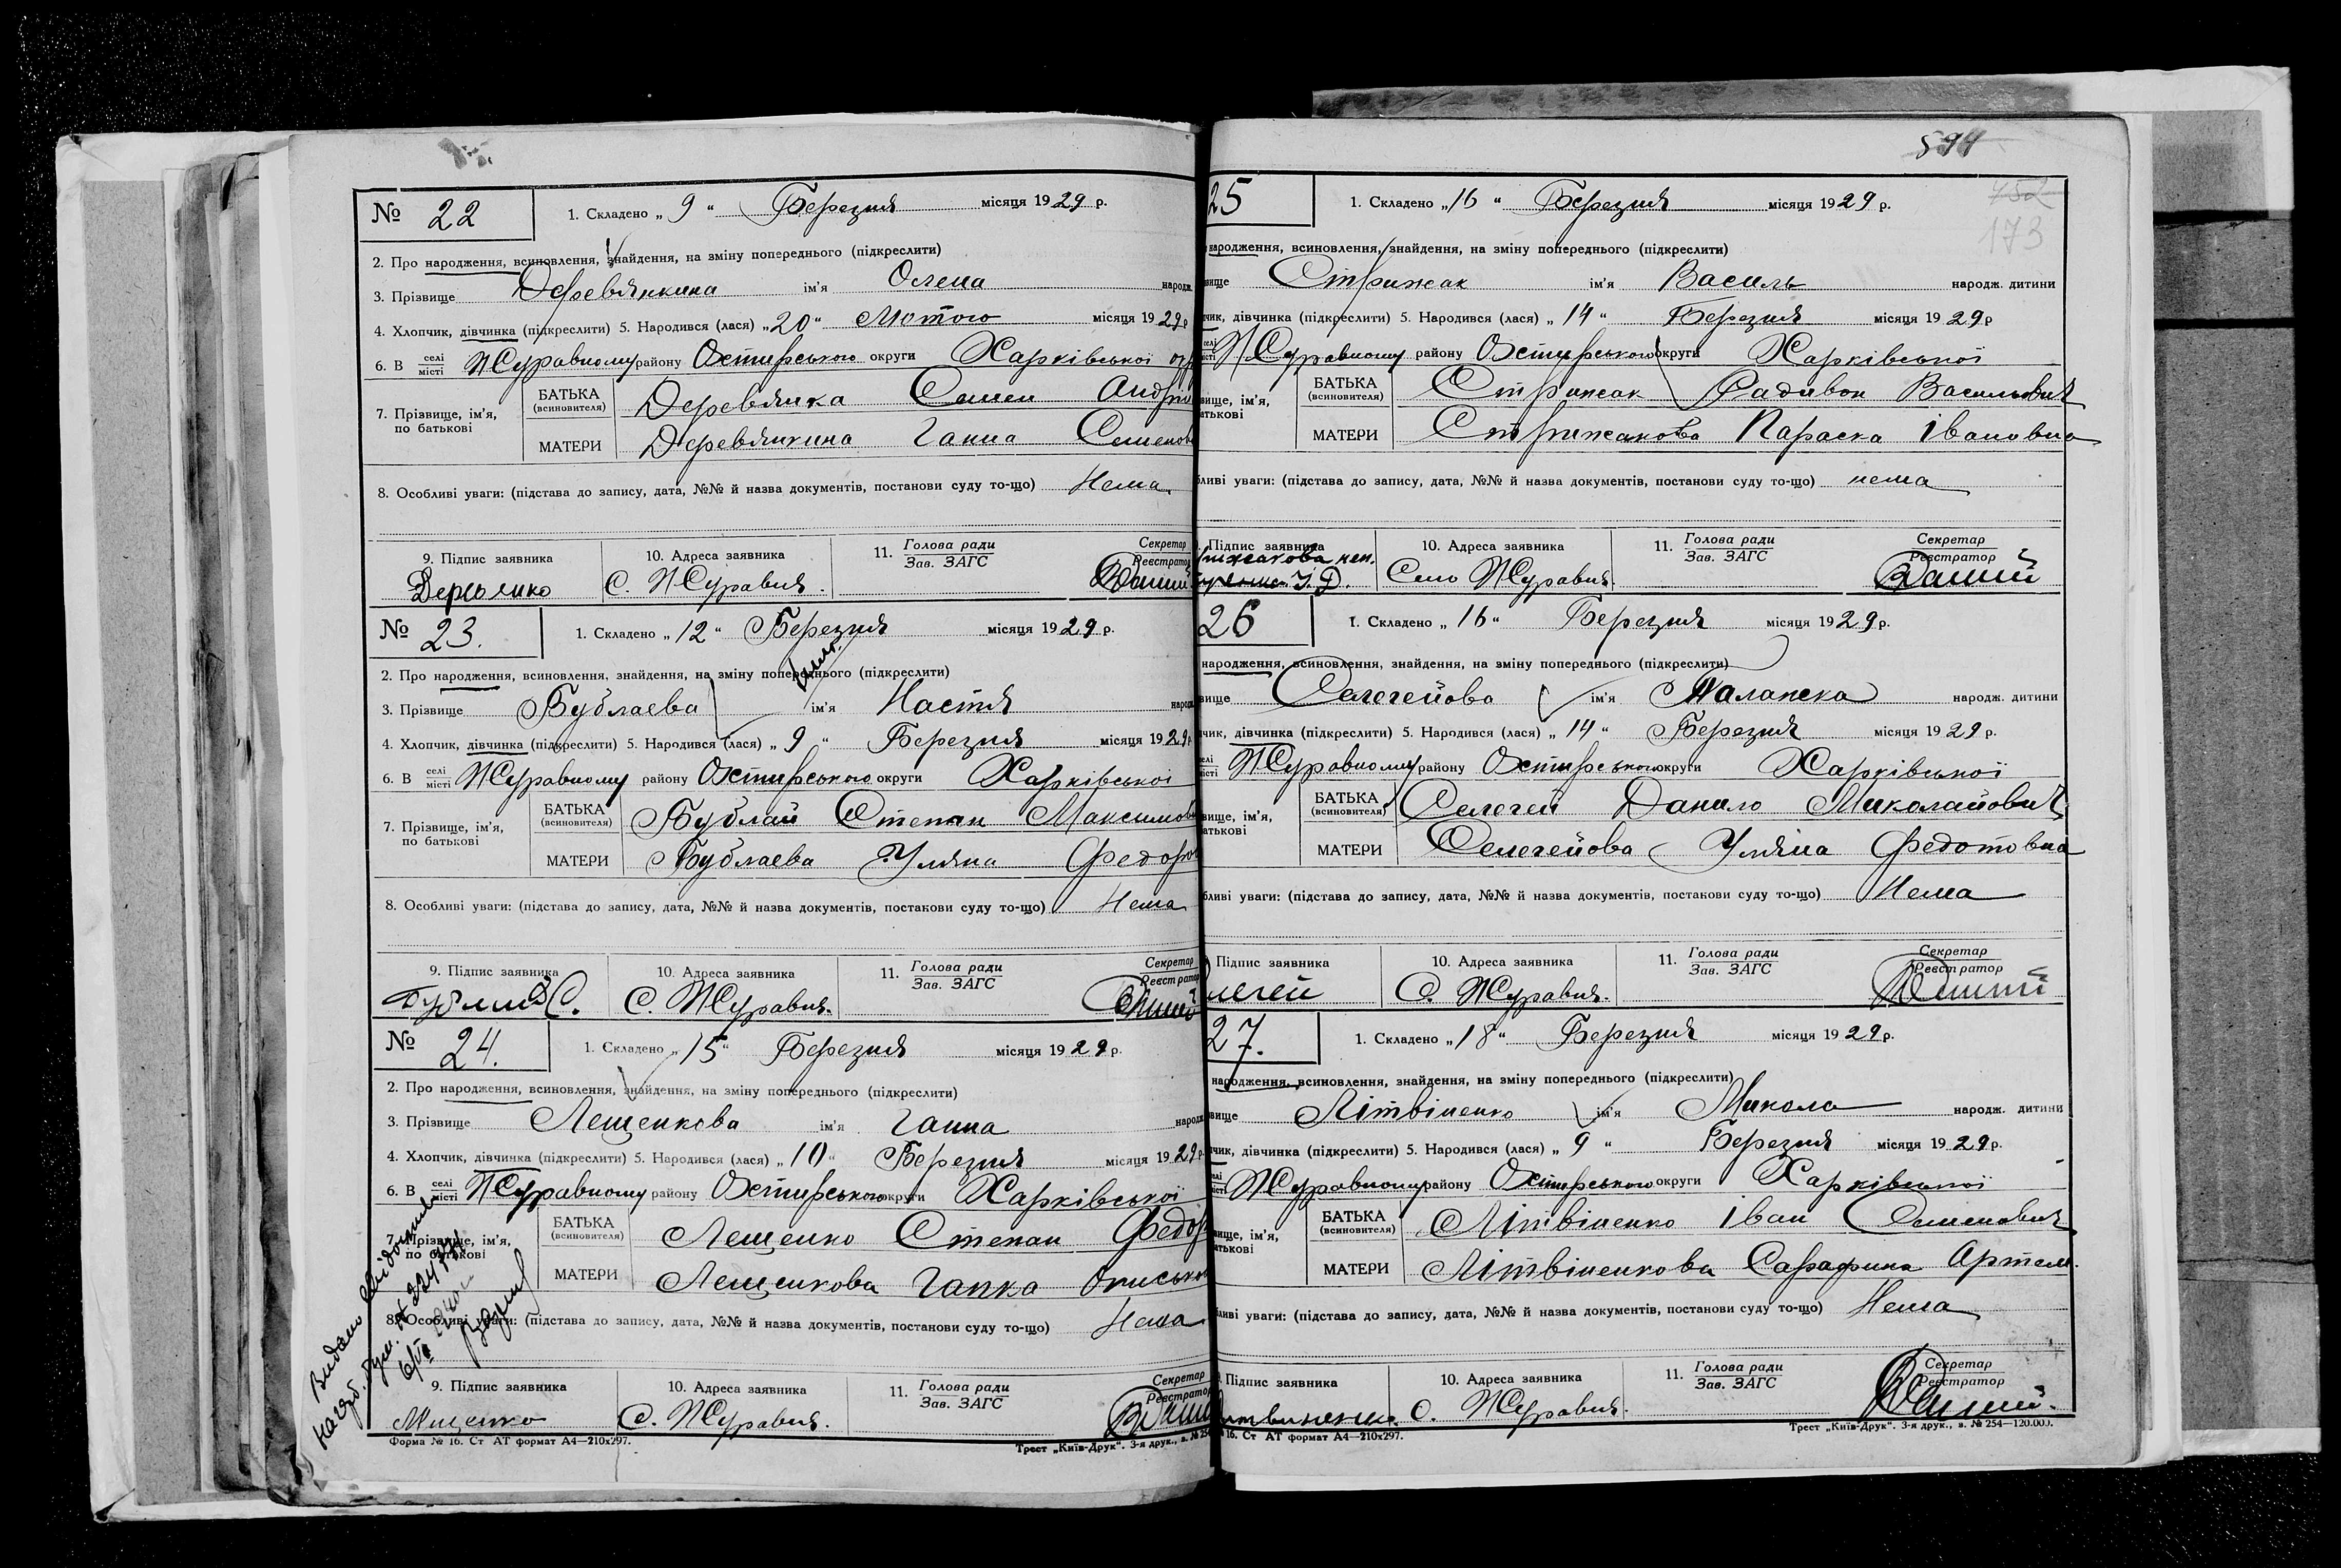 № 22
1. Складено „ 9 “ Березня місяця 1929 р.
2. Про народження, всиновлення, знайдення, на зміну попереднього (підкреслити)
3. Прізвище Деревянкина ім'я Олена народж.
4. Хлопчик, дівчинка (підкреслити) 5. Народився (лася) „20“ Лютого місяця 1929 р
6. В селі місті Журавному району Охтирського округи Харківської окр
7. Прізвище, ім'я, по батькові
БАТЬКА (всиновителя) Деревянка Семен Андрію
МАТЕРИ Деревянкина Ганна Семенов
8. Особливі уваги: (підстава до запису, дата, №№ й назва документів, постанови суду то-що) Нема
9. Підпис заявника 10. Адреса заявника 11. Голова ради Зав. ЗАГС Секретар Реєстратор
С. Журавня.
№ 23.
1. Складено „ 12 “ Березня місяця 1929 р.
2. Про народження, всиновлення, знайдення, на зміну попереднього (підкреслити)
3. Прізвище Бублаева ім'я Настя народж
4. Хлопчик, дівчинка (підкреслити) 5. Народився (лася) „ 9 “ Березня місяця 1929 р
6. В селі місті Журавному району Охтирського округи Харківської
7. Прізвище, ім'я, по батькові
БАТЬКА (всиновителя) Бублай Степан Максимов
МАТЕРИ Бублаева Уляна Федор
8. Особливі уваги: (підстава до запису, дата, №№ й назва документів, постанови суду то-що) Нема
9. Підпис заявника 10. Адреса заявника 11. Голова ради Зав. ЗАГС Секретар Реєстратор
С. Журавня.
№ 24.
1. Складено „ 15 “ Березня місяця 1929 р.
2. Про народження, всиновлення, знайдення, на зміну попереднього (підкреслити)
3. Прізвище Лещенкова ім'я Ганна народж
4. Хлопчик, дівчинка (підкреслити) 5. Народився (лася) „ 10 “ Березня місяця 1929 р.
6. В селі місті Журавному району Охтирського округи Харківської
7. Прізвище, ім'я, по батькові
БАТЬКА (всиновителя) Лещенко Степан Федор
МАТЕРИ Лещенкова Гапка Ониськ
8. Особливі уваги: (підстава до запису, дата, №№ й назва документів, постанови суду то-що) Нема
Видано
9. Підпис заявника 10. Адреса заявника 11. Голова ради Зав. ЗАГС Секретар Реєстратор
С. Журавня.
Форма № 16. Ст АТ формат А4—210х297. Трест „Київ-Друк“. 3-я друк., з. № 254
173
25
1. Складено „16 “ Березня місяця 1929 р.
народження, всиновлення, знайдення, на зміну попереднього (підкреслити)
вище Стрижак ім'я Василь народж. дитини
чик, дівчинка (підкреслити) 5. Народився (лася) „ 14 “ Березня місяця 1929 р
Журавному району Охтирського округи Харківської
вище, ім'я, атькові
БАТЬКА (всиновителя) Стрижак Радивон Васильович
МАТЕРИ Стрижакова Параска Івановна
бливі уваги: (підстава до запису, дата, №№ й назва документів, постанови суду то-що) нема
Підпис заявника 10. Адреса заявника 11. Голова ради Зав. ЗАГС Секретар Реєстратор
Село Журавня.
26
1. Складено „ 16 “ Березня місяця 1929 р.
народження, всиновлення, знайдення, на зміну попереднього (підкреслити)
вище Селегейова ім'я Малашка народж. дитини
чик, дівчинка (підкреслити) 5. Народився (лася) „ 14 “ Березня місяця 1929 р.
Журавному району Охтирського округи Харківської
вище, ім'я, атькові
БАТЬКА (всиновителя) Селегей Данило Миколайович
МАТЕРИ Селегейова Уляна Федотовна
бливі уваги: (підстава до запису, дата, №№ й назва документів, постанови суду то-що) Нема
Підпис заявника 10. Адреса заявника 11. Голова ради Зав. ЗАГС Секретар Реєстратор
легей С. Журавня.
27.
1. Складено „18 “ Березня місяця 1929 р.
народження, всиновлення, знайдення, на зміну попереднього (підкреслити)
вище Літвіненко ім'я Микола народж. дитини
чик, дівчинка (підкреслити) 5. Народився (лася) „ 9 “ Березня місяця 1929 р.
Журавному району Охтирського округи Харківської
вище, ім'я, атькові
БАТЬКА (всиновителя) Літвіненко Іван Семенович
МАТЕРИ Літвіненкова Сарафина Артем.
бливі уваги: (підстава до запису, дата, №№ й назва документів, постанови суду то-що) Нема
Підпис заявника 10. Адреса заявника 11. Голова ради Зав. ЗАГС Секретар Реєстратор
С. Журавня.
16. Ст АТ формат А4—210х297. Трест „Київ-Друк“. 3-я друк., з. № 254—120.000.